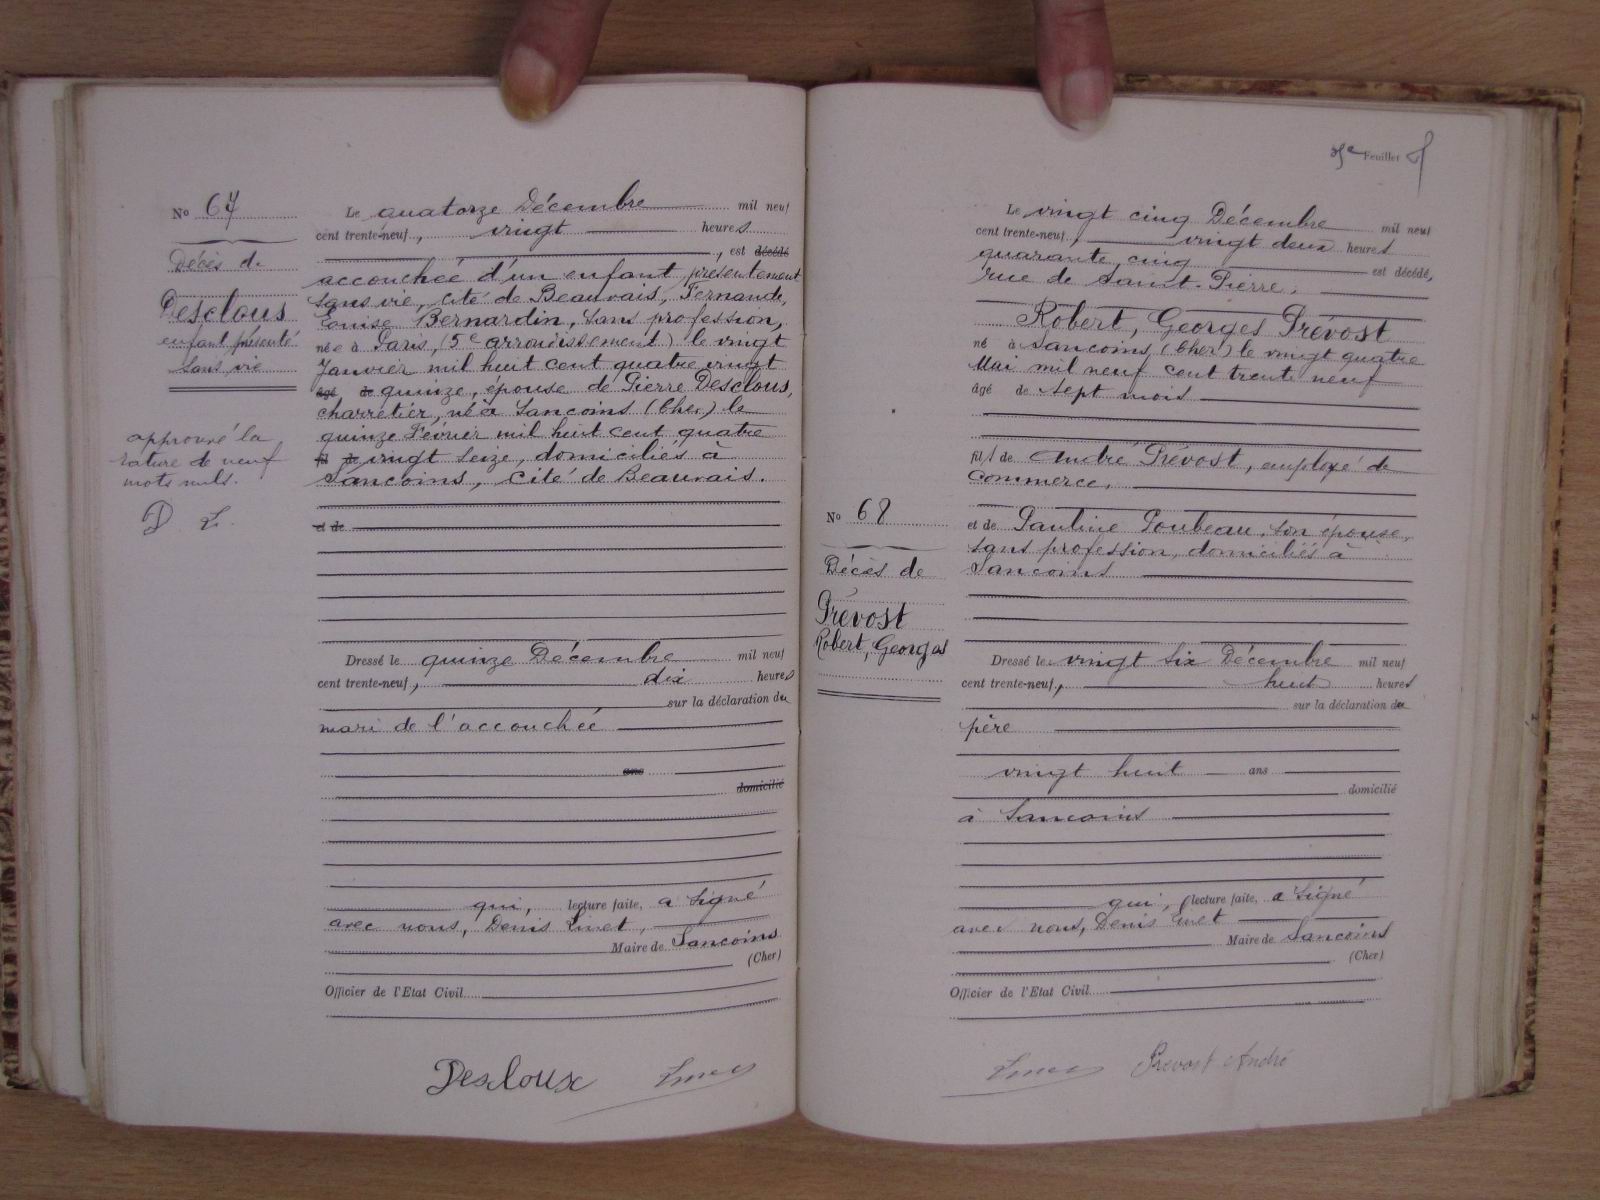 No 67
Décès de
Desclous
enfant présenté
sans vie
approuvé la
rature de neuf
mots nuls.
D L.
Le quatorze Décembre mil neuf
cent trente-neuf, vingt heures
, est décédé
accouchée d'un enfant présentement
sans vie, cité de Beauvais, Fernande,
Louise Bernardin, sans profession,
née à Paris, (5e arrondissement) le vingt
Janvier mil huit cent quatre vingt
âgé de quinze, épouse de Pierre Desclous,
charretier, né à Sancoins (Cher) le
quinze Février mil huit cent quatre
fil de vingt seize, domiciliés à
Sancoins, cité de Beauvais.
et de
Dressé le quinze Décembre mil neuf
cent trente-neuf, dix heures
sur la déclaration du
mari de l'accouchée
ans
domicilié
qui, lecture faite, a signé
avec nous, Denis Linet,
Maire de Sancoins
(Cher)
Officier de l'Etat Civil
Desloux
Feuillet
Le vingt cinq Décembre mil neuf
cent trente-neuf, vingt deux heures
quarante cinq est décédé,
rue de Saint-Pierre,
Robert, Georges Prévost
né à Sancoins, (Cher) le vingt quatre
Mai mil neuf cent trente neuf
âgé de sept mois
fils de André Prévost, employé de
commerce.
No 68
Décès de
Prévost
Robert, Georges
et de Pauline Poubeau, son épouse,
sans profession, domiciliés à
Sancoins
Dressé le vingt six Décembre mil neuf
cent trente-neuf, huit heures
sur la déclaration du
père
vingt huit ans
domicilié
à Sancoins
qui, lecture faite, a signé
avec nous, Denis Linet
Maire de Sancoins
(Cher)
Officier de l'Etat Civil
Prevost André